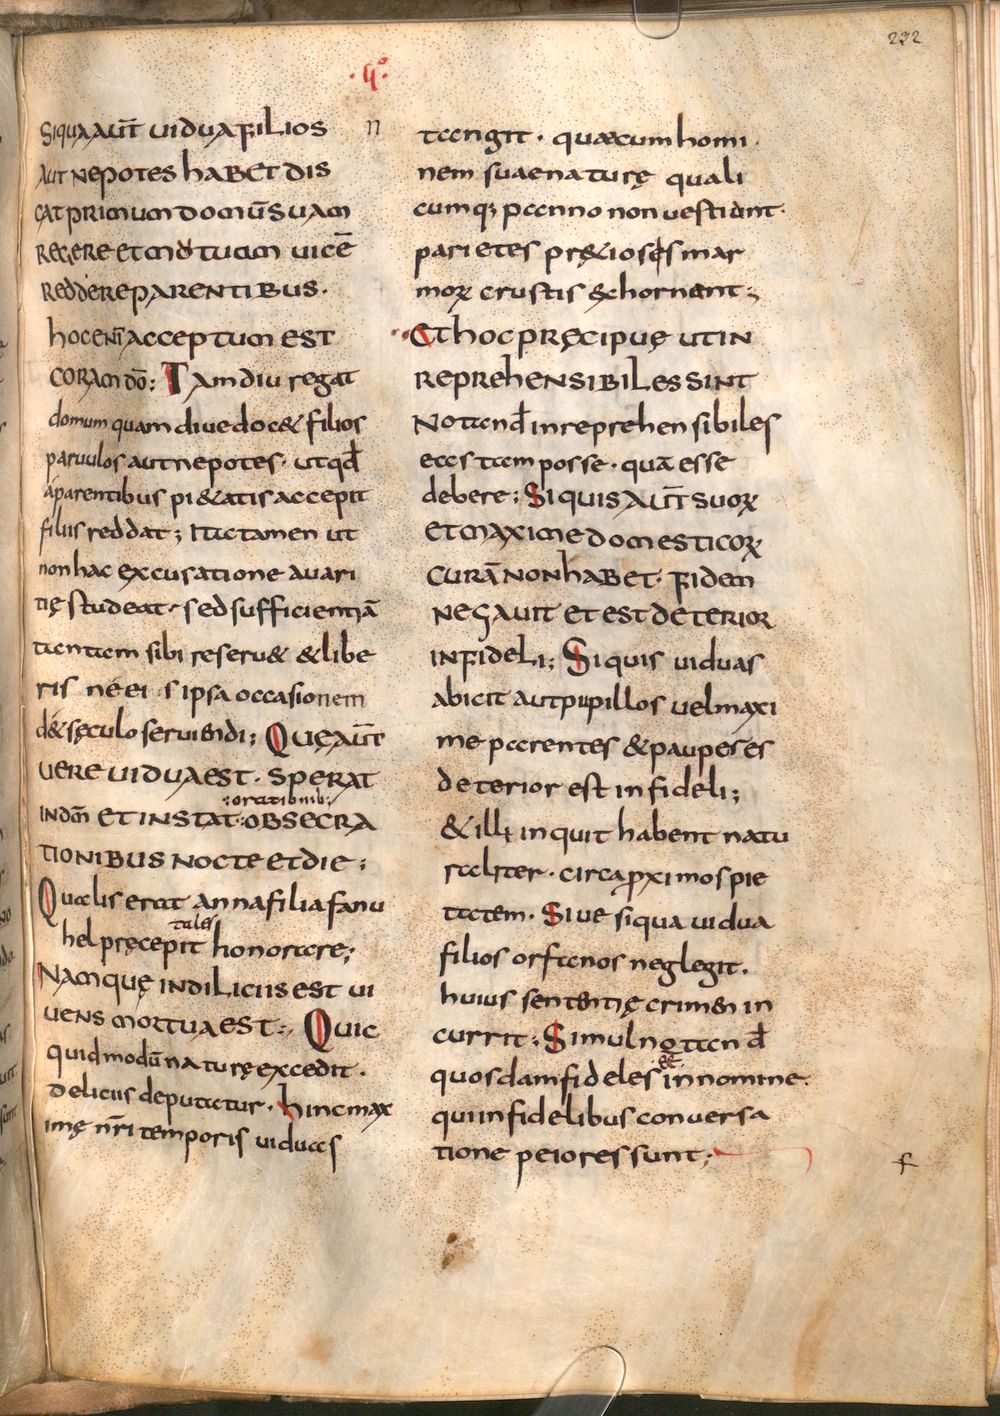 222
·q̊·
Siqua aut̄ uidua filios
aut nepotes habet dis
cat primum domū suam
regere et mutuam uicē
reddere parentibus·
hoc enī acceptum est
coram dō; Tamdiu regat
domum quam diu edoc& filios
paruulos aut nepotes· ut qd̄
a parentibus pi&atis accepit
filiis reddat; Ita tamen ut
non hac excusatione auari
tię studeat· sed sufficientiā
tantam sibi reseru& & libe
ris ne ei s ipsa occasionem
d& sęculo seruiendi; Quę aut̄
uere uidua est· sperat
:orationib;
in dm̄ et instat: obsecra
tionibus nocte et die;
Qualis erat anna filia fanu
tales
hel pręcepit honorare;
Nam quę in diliciis est ui
uens mortua est; Quic
quid modū naturę excedit·
deliciis deputatur· hinc max
imę nr̄i temporis uiduas
n
tangit· quae cum homi
nem suae naturę quali
cumq; panno non uestiant·
parietes pr&iosis mar
moꝝ crustis &hornant;
Et hoc pręcipuę ut in
reprehensibiles sint
Notand̄ inreprehensibiles
eas tam posse· quā esse
debere; Si quis aut̄ suoꝝ
et maxime domesticoꝝ
curā non habet· fidem
negauit et est deterior
infideli; Si quis uiduas
abicit aut pupillos uel maxi
me parentes & pauperes
deterior est infideli;
& illi inquit habent natu
raliter· circa ꝓximos pie
tatem· Siue siqua uidua
filios orfanos neglegit·
huius sententię crimen in
currit; Simul notand̄
&
quosdam fideles in nomine·
qui infidelibus conuersa
tione peiores sunt;
f